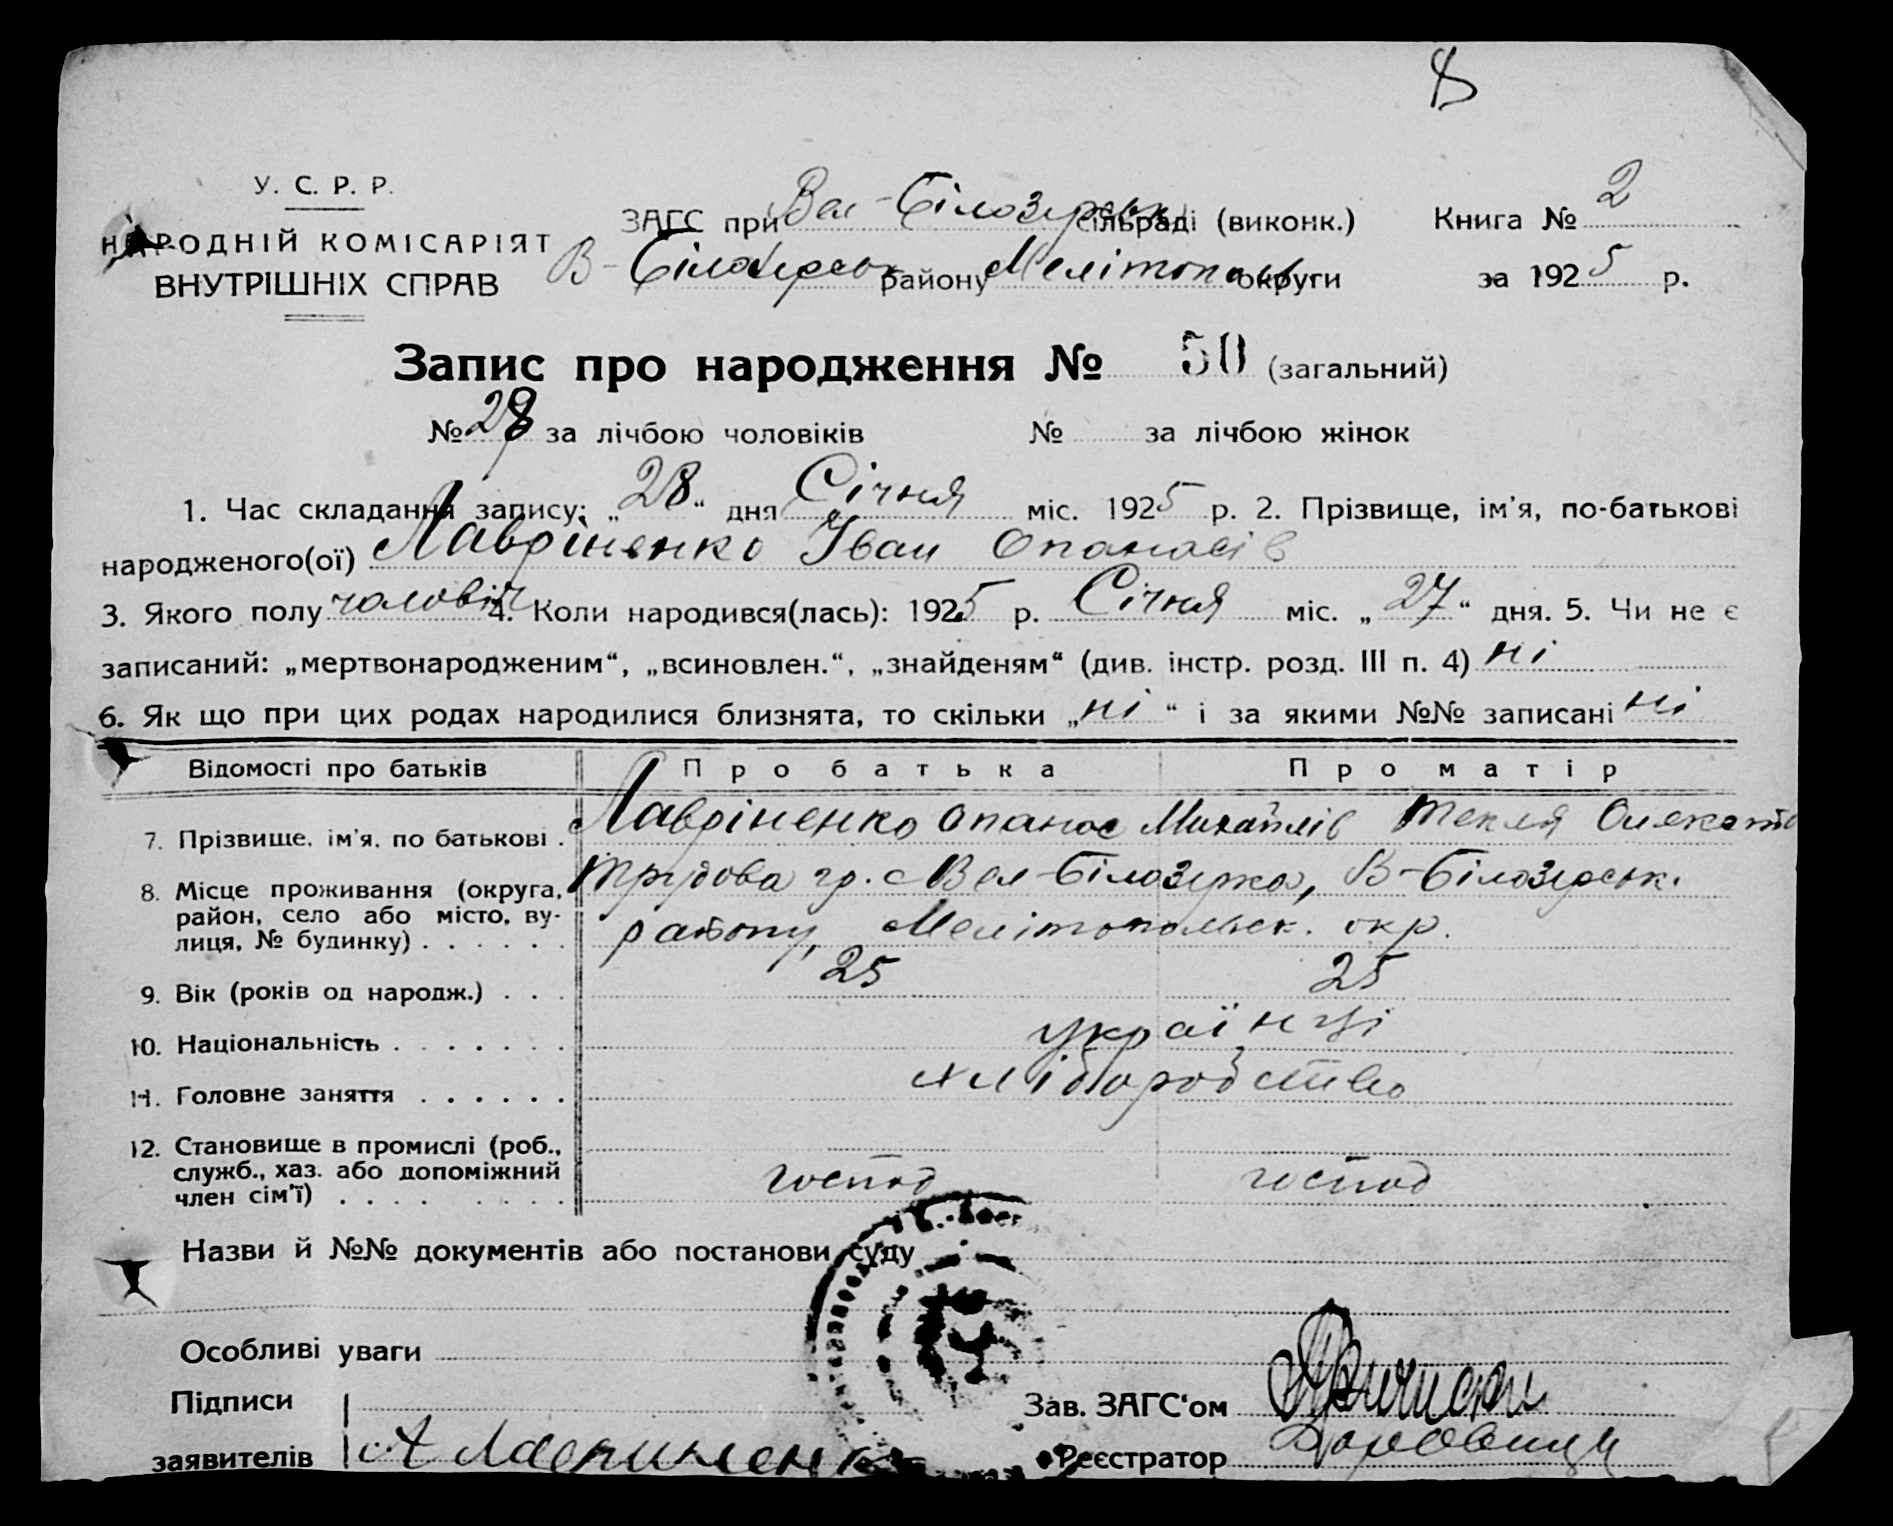 8
У. С. Р. Р.
НАРОДНІЙ КОМІСАРІЯТ
ВНУТРІШНІХ СПРАВ
ЗАГС при Вел-Білозерськ сільраді (виконк.) Книга № 2
В-Білозерськ району Мелітопол округи за 1925 р.
Запис про народження № 50 (загальний)
№ 28 за лічбою чоловіків № за лічбою жінок
1. Час складання запису: „28“ дня Січня міс. 1925 р. 2. Прізвище, ім'я, по-батькові
народженого(ої) Лавріненко Іван Опанасів
3. Якого полу чоловіч 4. Коли народився(лась): 1925 р. Січня міс. „27“ дня. 5. Чи не є
записаний: „мертвонародженим“, „всиновлен.“, „знайденям“ (див. інстр. розд. III п. 4) ні
6. Як що при цих родах народилися близнята, то скільки „ні“ і за якими №№ записані ні
Відомості про батьків Про батька Про матір
7. Прізвище, ім'я, по батькові . Лавріненко Опанас Михайлів Текля
8. Місце проживання (округа, район, село або місто, вулиця, № будинку) . . . . . . Трудова гр. с Вел-Білозерка, В-Білозерськ.
району, Мелітопольськ. окр.
9. Вік (років од народж.) . . . 25 25
10. Національність . . . . . . . українці
11. Головне заняття . . . . . . хліборобство
12. Становище в промислі (роб., служб., хаз. або допоміжний член сім'ї) . . . . . . . . господ господ
Назви й №№ документів або постанови суду
Особливі уваги
Підписи Зав. ЗАГС'ом
заявителів А Лавриненко Реєстратор